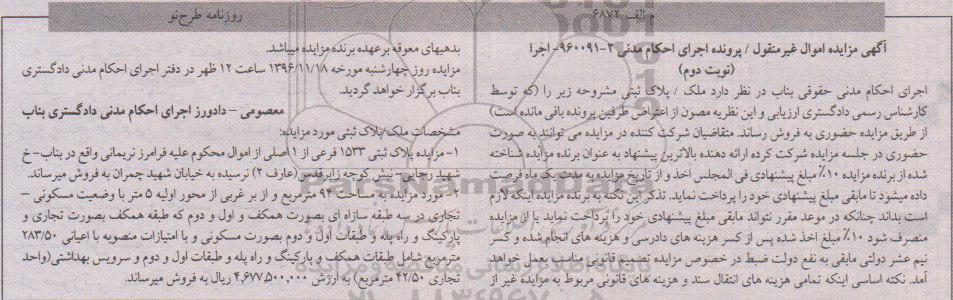 م الف ۶۸۷۲
روزنامه طرح‌نو
آگهی مزایده اموال غیرمنقول / پرونده اجرای احکام مدنی ۲-۹۶۰۰۹۱- اجرا
(نوبت دوم)
اجرای احکام مدنی حقوقی بناب در نظر دارد ملک / پلاک ثبتی مشروحه زیر را (که توسط
کارشناس رسمی دادگستری ارزیابی و این نظریه مصون از اعتراض طرفین پرونده باقی مانده است)
از طریق مزایده حضوری به فروش رساند. متقاضیان شرکت کننده در مزایده می توانند به صورت
حضوری در جلسه مزایده شرکت کرده ارائه دهنده بالاترین پیشنهاد به عنوان برنده مزایده شناخته
شده از برنده مزایده ۱۰٪ مبلغ پیشنهادی فی المجلس اخذ و از تاریخ مزایده به مدت یک ماه فرصت
داده میشود تا مابقی مبلغ پیشنهادی خود را پرداخت نماید. تذکر این نکته به برنده مزایده اینکه لازم
است بداند چنانکه در موعد مقرر نتواند مابقی مبلغ پیشنهادی خود را پرداخت نماید یا از مزایده
منصرف شود ۱۰٪ مبلغ اخذ شده پس از کسر هزینه های دادرسی و هزینه های انجام شده و کسر
نیم عشر دولتی مابقی به نفع دولت ضبط در خصوص مزایده تصمیم قانونی مناسب بعمل خواهد
آمد. نکته اساسی اینکه تمامی هزینه های انتقال سند و هزینه های قانونی مربوط به مزایده غیر از
بدهیهای معوقه برعهده برنده مزایده میباشد.
مزایده روز چهارشنبه مورخه ۱۳۹۶/۱۱/۱۸ ساعت ۱۲ ظهر در دفتر اجرای احکام مدنی دادگستری
بناب برگزار خواهد گردید.
معصومی – دادورز اجرای احکام مدنی دادگستری بناب
مشخصات ملک/پلاک ثبتی مورد مزایده:
۱- مزایده پلاک ثبتی ۱۵۳۳ فرعی از ۱ اصلی از اموال محکوم علیه فرامرز نریمانی واقع در بناب- خ
شهید رجایی – نبش کوچه زایرقدس (عارف ۲) نرسیده به خیابان شهید چمران به فروش میرساند.
۲- مورد مزایده به مساحت ۹۴ مترمربع و از بر غربی از محور اولیه ۵ متر با وضعیت مسکونی –
تجاری در سه طبقه سازه ای بصورت همکف و اول و دوم که طبقه همکف بصورت تجاری و
پارکینگ و راه پله و طبقات اول و دوم بصورت مسکونی و با امتیازات منصوبه با اعیانی ۲۸۳/۵۰
مترمربع شامل طبقات همکف و پارکینگ و راه پله و طبقات اول و دوم و سرویس بهداشتی (واحد
تجاری ۴۲/۵۰ مترمربع) به ارزش ۴,۶۷۷,۵۰۰,۰۰۰ ریال به فروش میرساند.
ParsNamadData